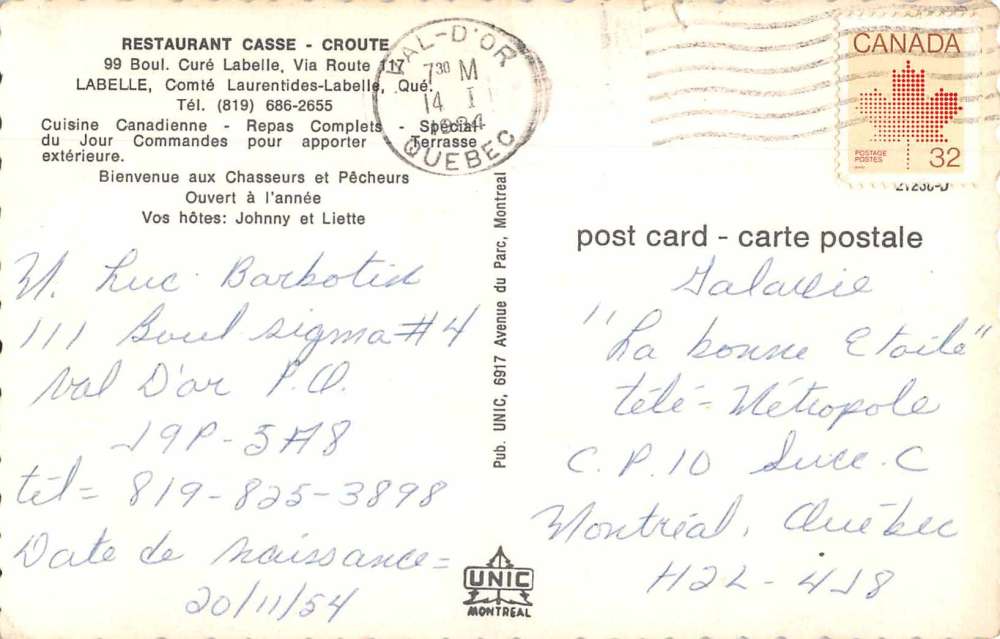 RESTAURANT CASSE - CROUTE
99 Boul. Curé Labelle, Via Route 117
LABELLE, Comté Laurentides-Labelle, Qué.
Tél. (819) 686-2655
Cuisine Canadienne - Repas Complets - Spécial
du Jour Commandes pour apporter - Terrasse
extérieure.
Bienvenue aux Chasseurs et Pêcheurs
Ouvert à l'année
Vos hôtes: Johnny et Liette
M. Luc Barbotin
111 Boul sigma #4
Val D'or P.Q.
J9P-5A8
tél= 819-825-3898
Date de naissance=
20/11/54
VAL-D'OR
7 30 M
14 I
1984
QUEBEC
Pub. UNIC, 6917 Avenue du Parc, Montreal
UNIC
MONTREAL
CANADA
POSTAGE
POSTES
32
post card - carte postale
Galaxie
"La bonne Etoile"
télé-Métropole
C.P. 10 Succ. C
Montréal, Québec
H2L-4J8